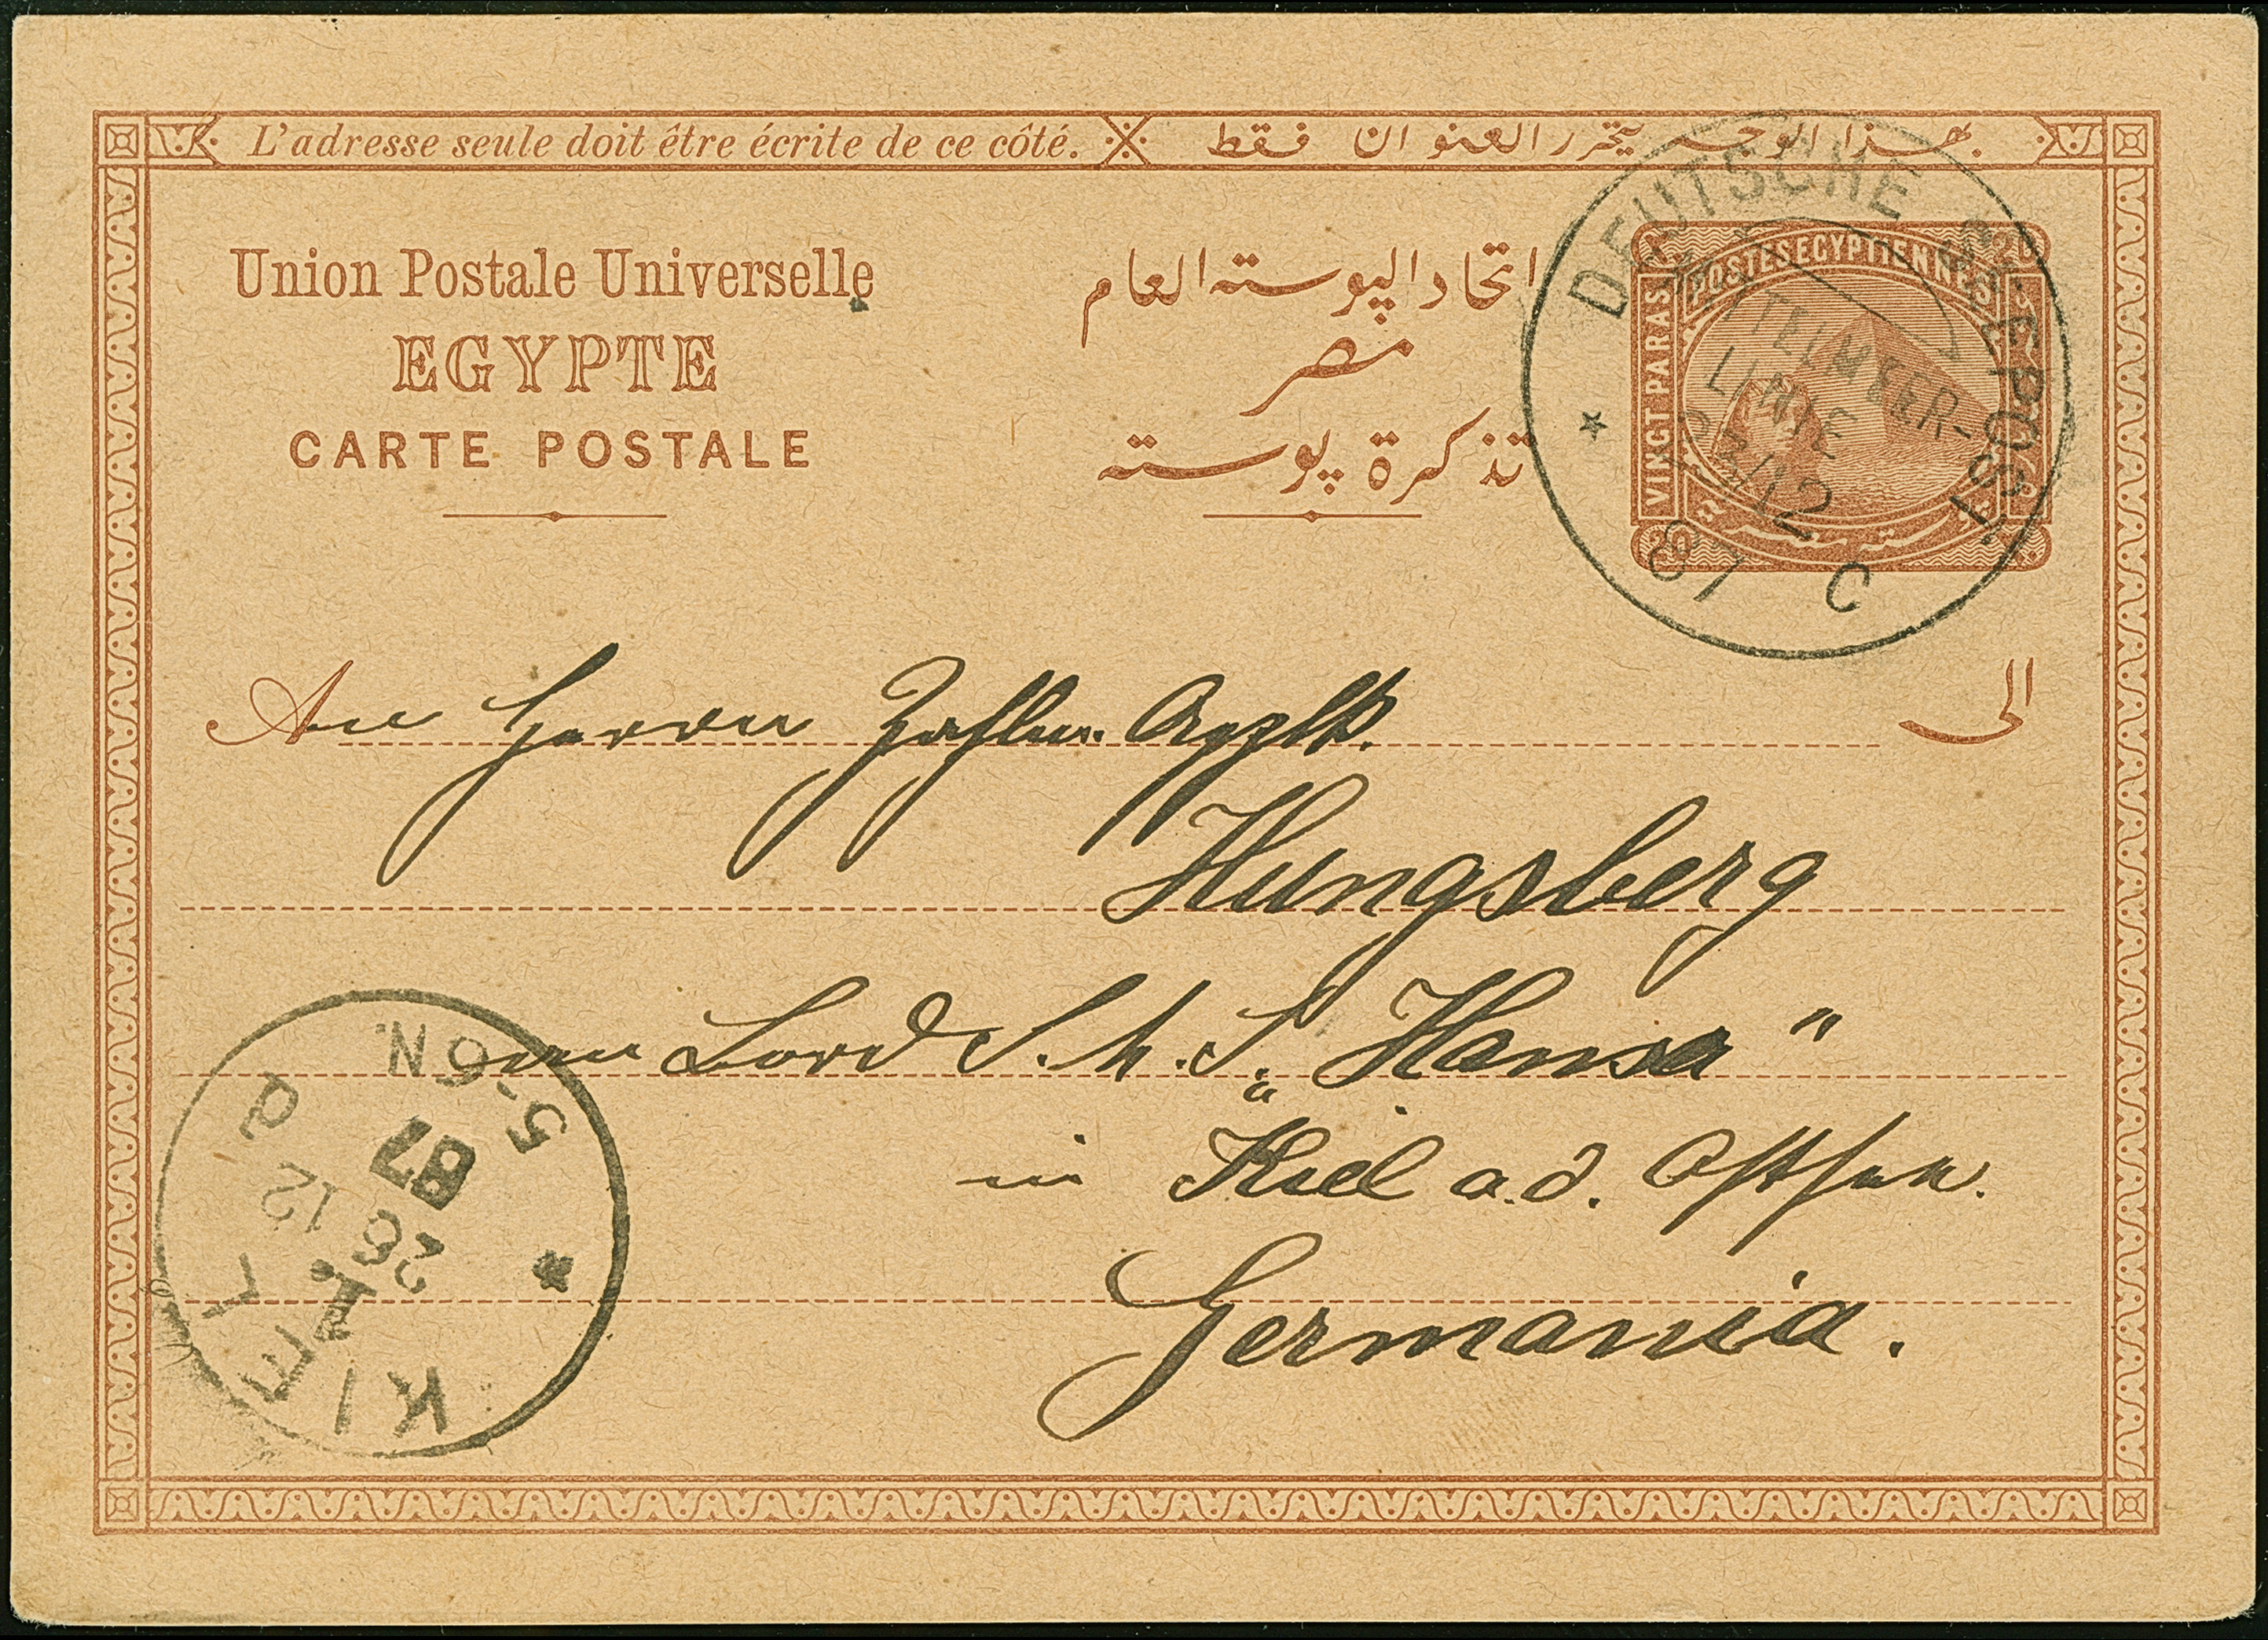 L'adresse seule doit être écrite de ce côté.
بهذا الوجه يتحرر العنوان فقط
Union Postale Universelle
EGYPTE
CARTE POSTALE
اتحاد البوسته العام
مصر
تذكرة پوسته
POSTES EGYPTIENNES
VINGT PARAS
20
DEUTSCHE SEEPOST
MITTELMEER-
LINIE
23/12
87
C
An Herrn
الى
Hungsberg
an Bord S. M. S. „Hansa"
in Kiel a. d. Ostsee.
Germania.
KIEL
P
I.
26
12
87
5-6N.